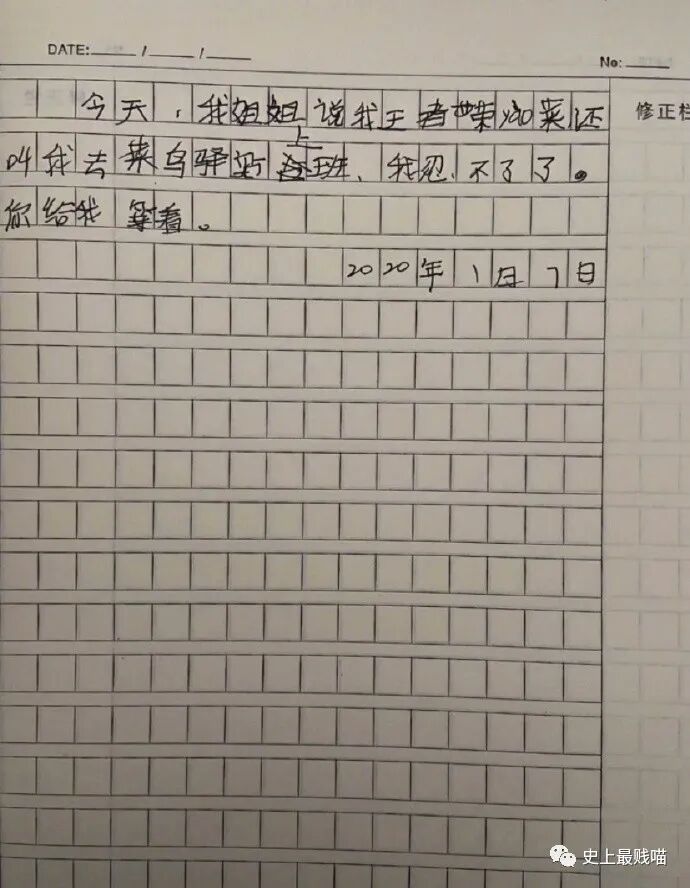 DATE: / /
No:
修正栏
今天,我姐姐说我王者荣
菜还
叫我去菜鸟驿站上班、我忍不了了。
你给我等着。
2020年1月7日
史上最贱喵